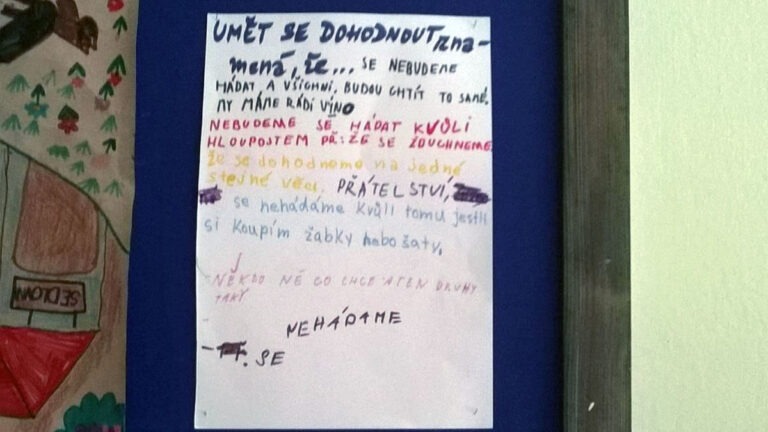 UMĚT SE DOHODNOUT zna-
mená, že... SE NEBUDEME
HÁDAT, A VŠICHNI, BUDOU CHTÍT TO SAMÉ,
MY MÁME RÁDI VÍNO
NEBUDEME SE HÁDAT KVŮLI
HLOUPOSTEM PŘ: ŽE SE ŽDUCHNEME
že se dohodneme na jedné
stejné věci, PŘÁTELSTVÍ,
se nehádáme kvůli tomu jestli
si koupím žabky nebo šaty.
NĚKDO NĚ CO CHCE A TEN DRUHÝ
TAKÝ
NEHÁDAME
- SE
SEDLOV